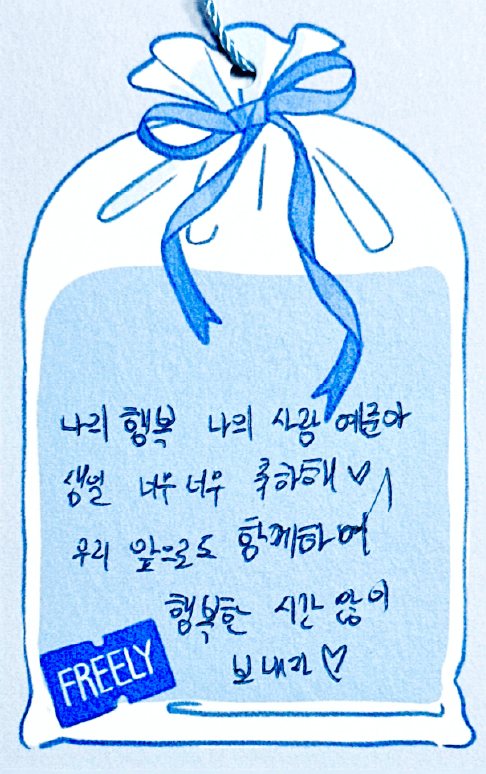 나의 행복 나의 사랑 예준아
생일 너무 너무 축하해 ♡
우리 앞으로도 함께하며
행복한 시간 많이
보내자 ♡
FREELY